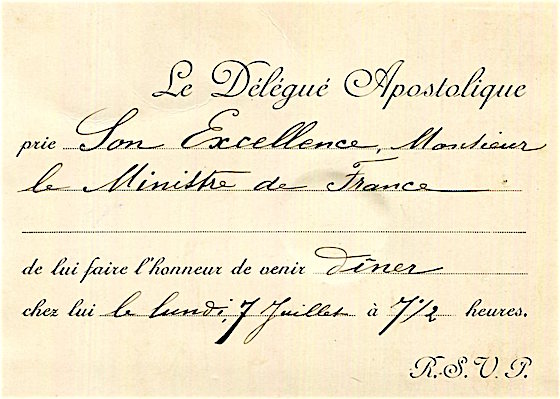 Le Délégué Apostolique
prie Son Excellence, Monsieur
le Ministre de France
de lui faire l'honneur de venir dîner
chez lui le lundi, 7 Juillet à 7 1/2 heures.
R.S.V.P.